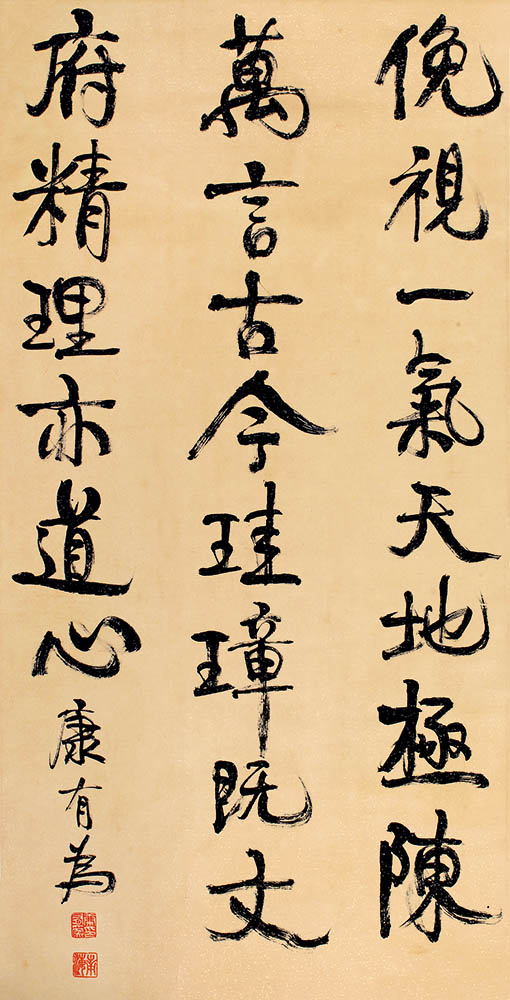 俛視一氣天地極陳
萬言古今珪璋既文
府精理亦道心
康有為